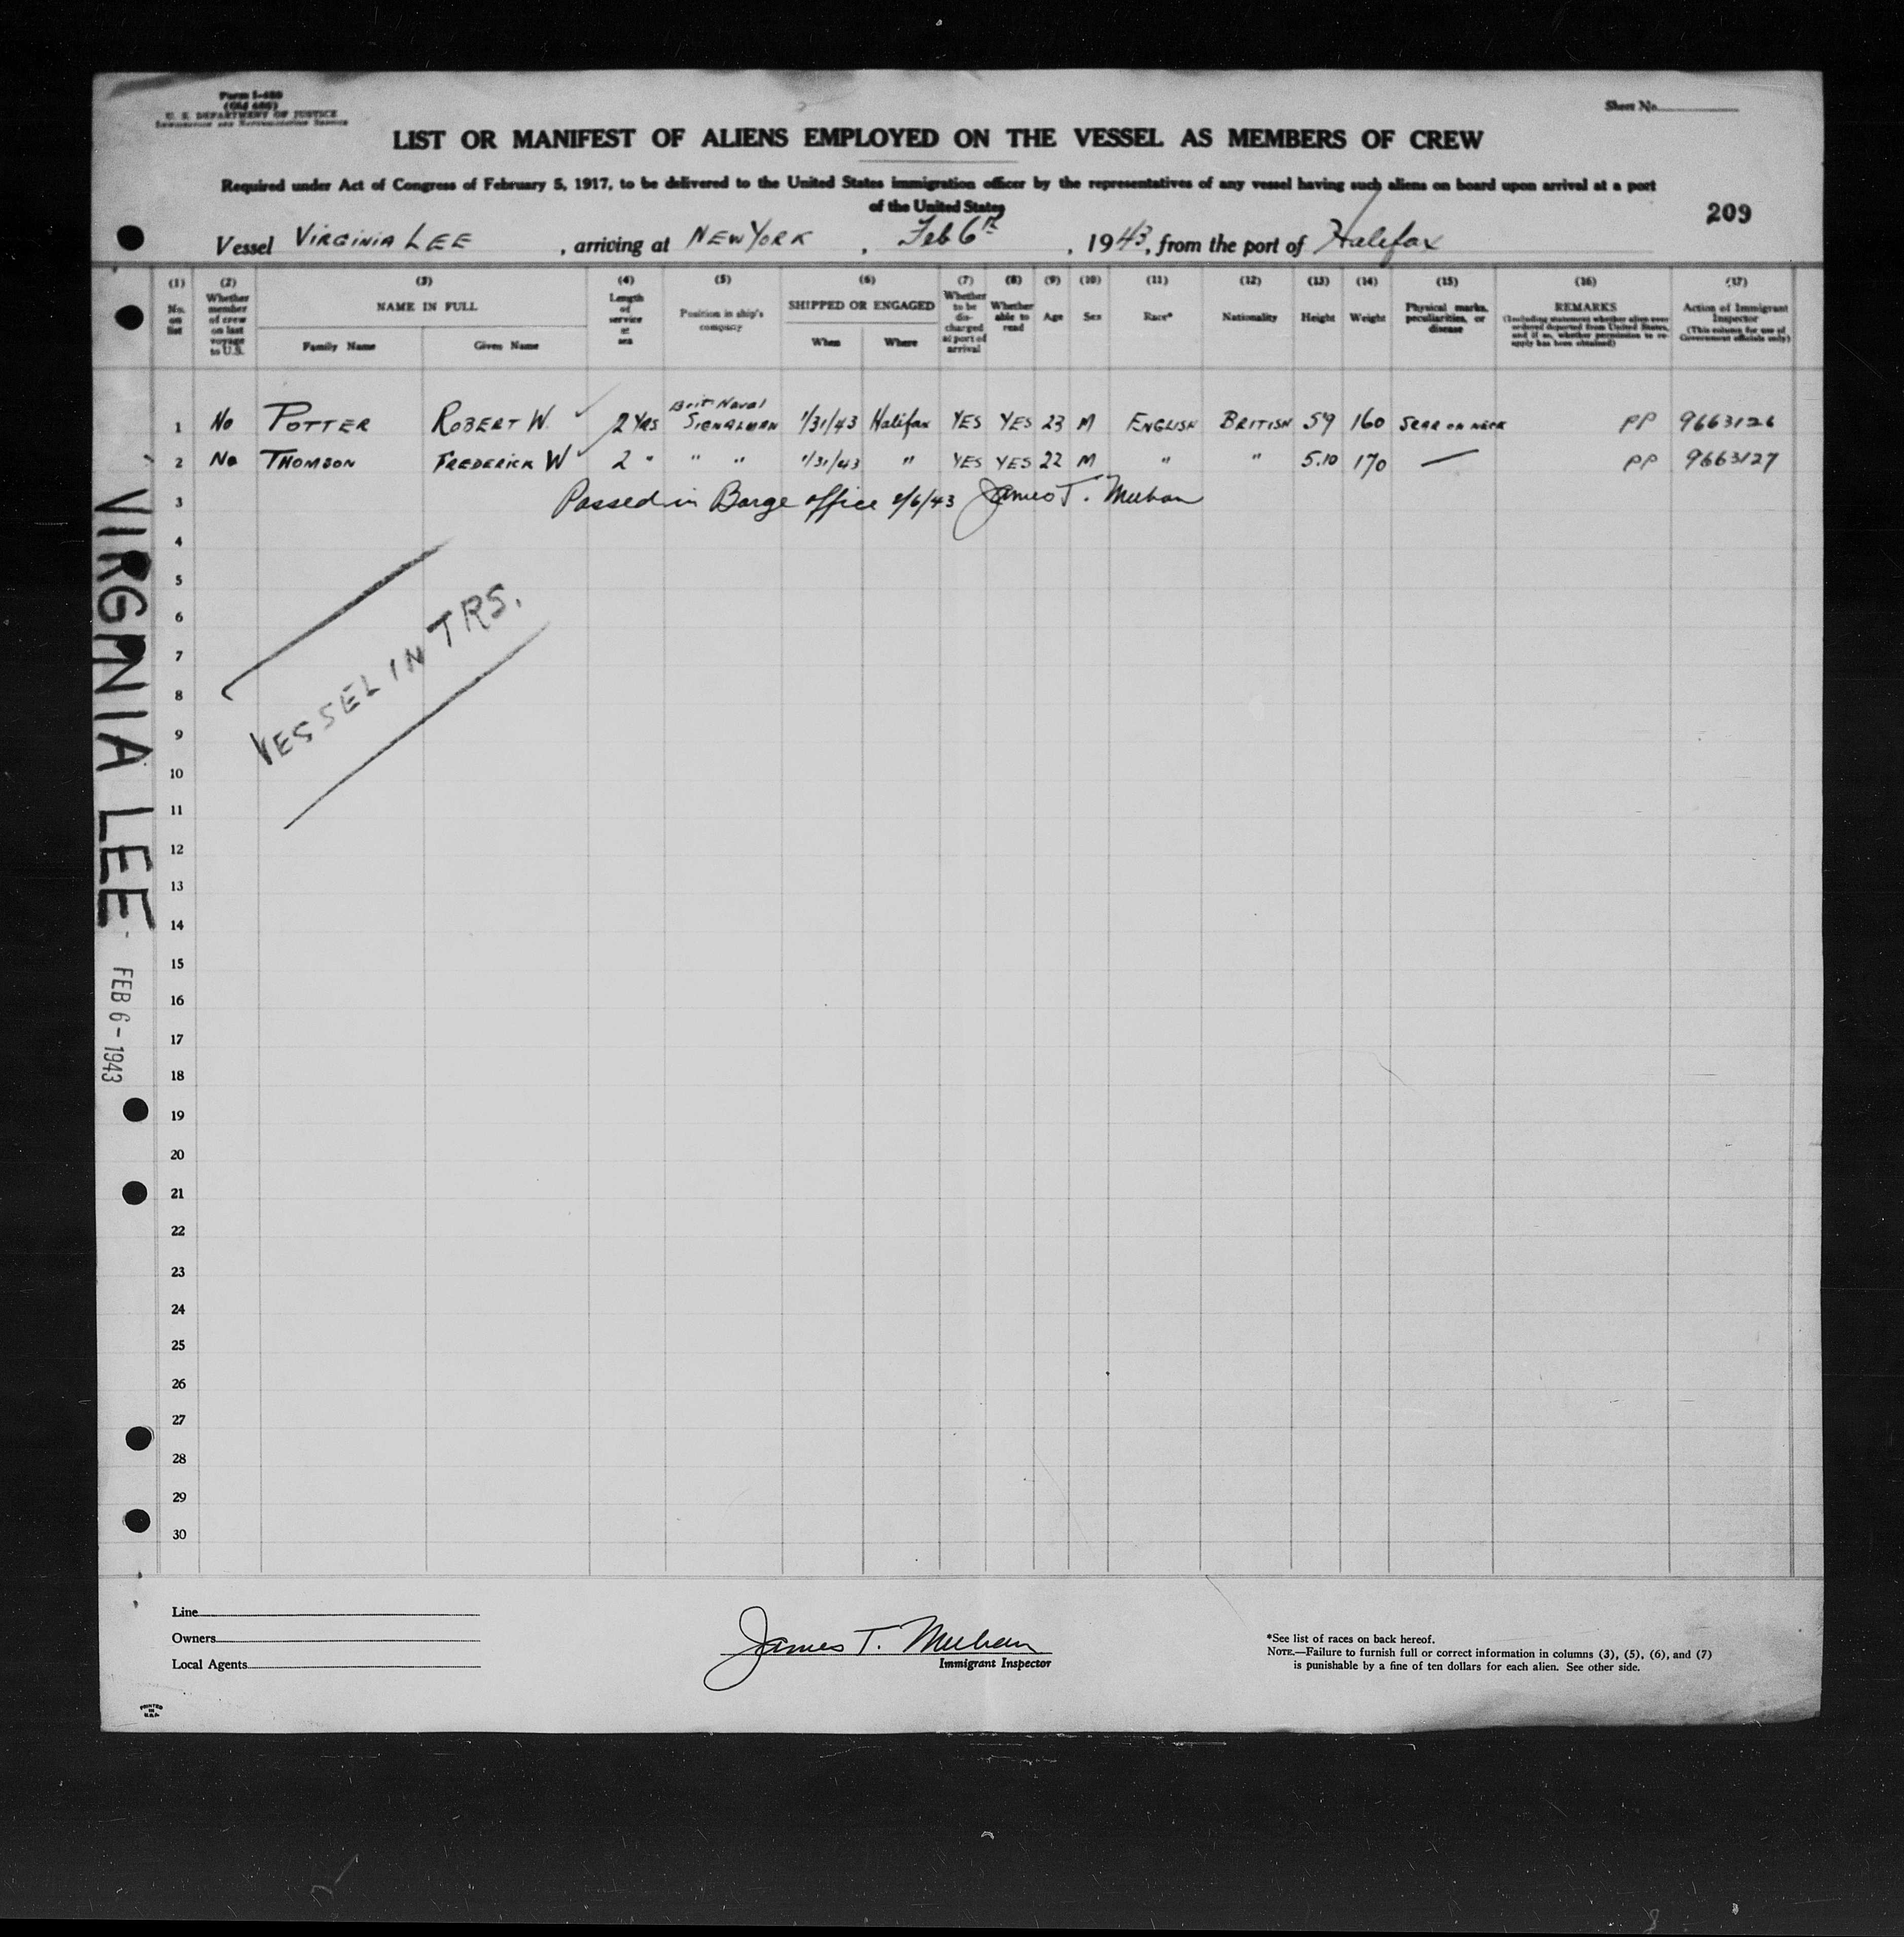 Form I-480
(Old 680)
U. S. DEPARTMENT OF JUSTICE
Immigration and Naturalization Service
Sheet No.
LIST OR MANIFEST OF ALIENS EMPLOYED ON THE VESSEL AS MEMBERS OF CREW
Required under Act of Congress of February 5, 1917, to be delivered to the United States immigration officer by the representatives of any vessel having such aliens on board upon arrival at a port
of the United States
209
Vessel VIRGINIA LEE , arriving at NEW YORK , Feb 6th , 1943, from the port of Halifax
(1) (2) (3) (4) (5) (6) (7) (8) (9) (10) (11) (12) (13) (14) (15) (16) (17)
No. on list
Whether member of crew on last voyage to U.S.
NAME IN FULL
Family Name
Given Name
Length of service at sea
Position in ship's company
SHIPPED OR ENGAGED
When
Where
Whether to be discharged at port of arrival
Whether able to read
Age
Sex
Race*
Nationality
Height
Weight
Physical marks, peculiarities, or disease
REMARKS
(Including statement whether alien ever ordered deported from United States, and if so, whether permission to reapply has been obtained)
Action of Immigrant Inspector
(This column for use of Government officials only)
1 No POTTER ROBERT W. 2 YRS Brit Naval SIGNALMAN 1/31/43 Halifax YES YES 23 M ENGLISH BRITISH 5'9 160 SCAR ON NECK PP 9663126
2 No THOMSON FREDERICK W 2 " " " 1/31/43 " YES YES 22 M " " 5.10 170 — PP 9663127
3 Passed in Barge office 2/6/43 James T. Meehan
4
5
6
7
8
9
10
11
12
13
14
15
16
17
18
19
20
21
22
23
24
25
26
27
28
29
30
VESSEL IN TRS.
VIRGINIA LEE -
FEB 6 - 1943
Line
Owners
Local Agents
James T. Meehan
Immigrant Inspector
*See list of races on back hereof.
NOTE.—Failure to furnish full or correct information in columns (3), (5), (6), and (7)
is punishable by a fine of ten dollars for each alien. See other side.
PRINTED
IN
U.S.A.